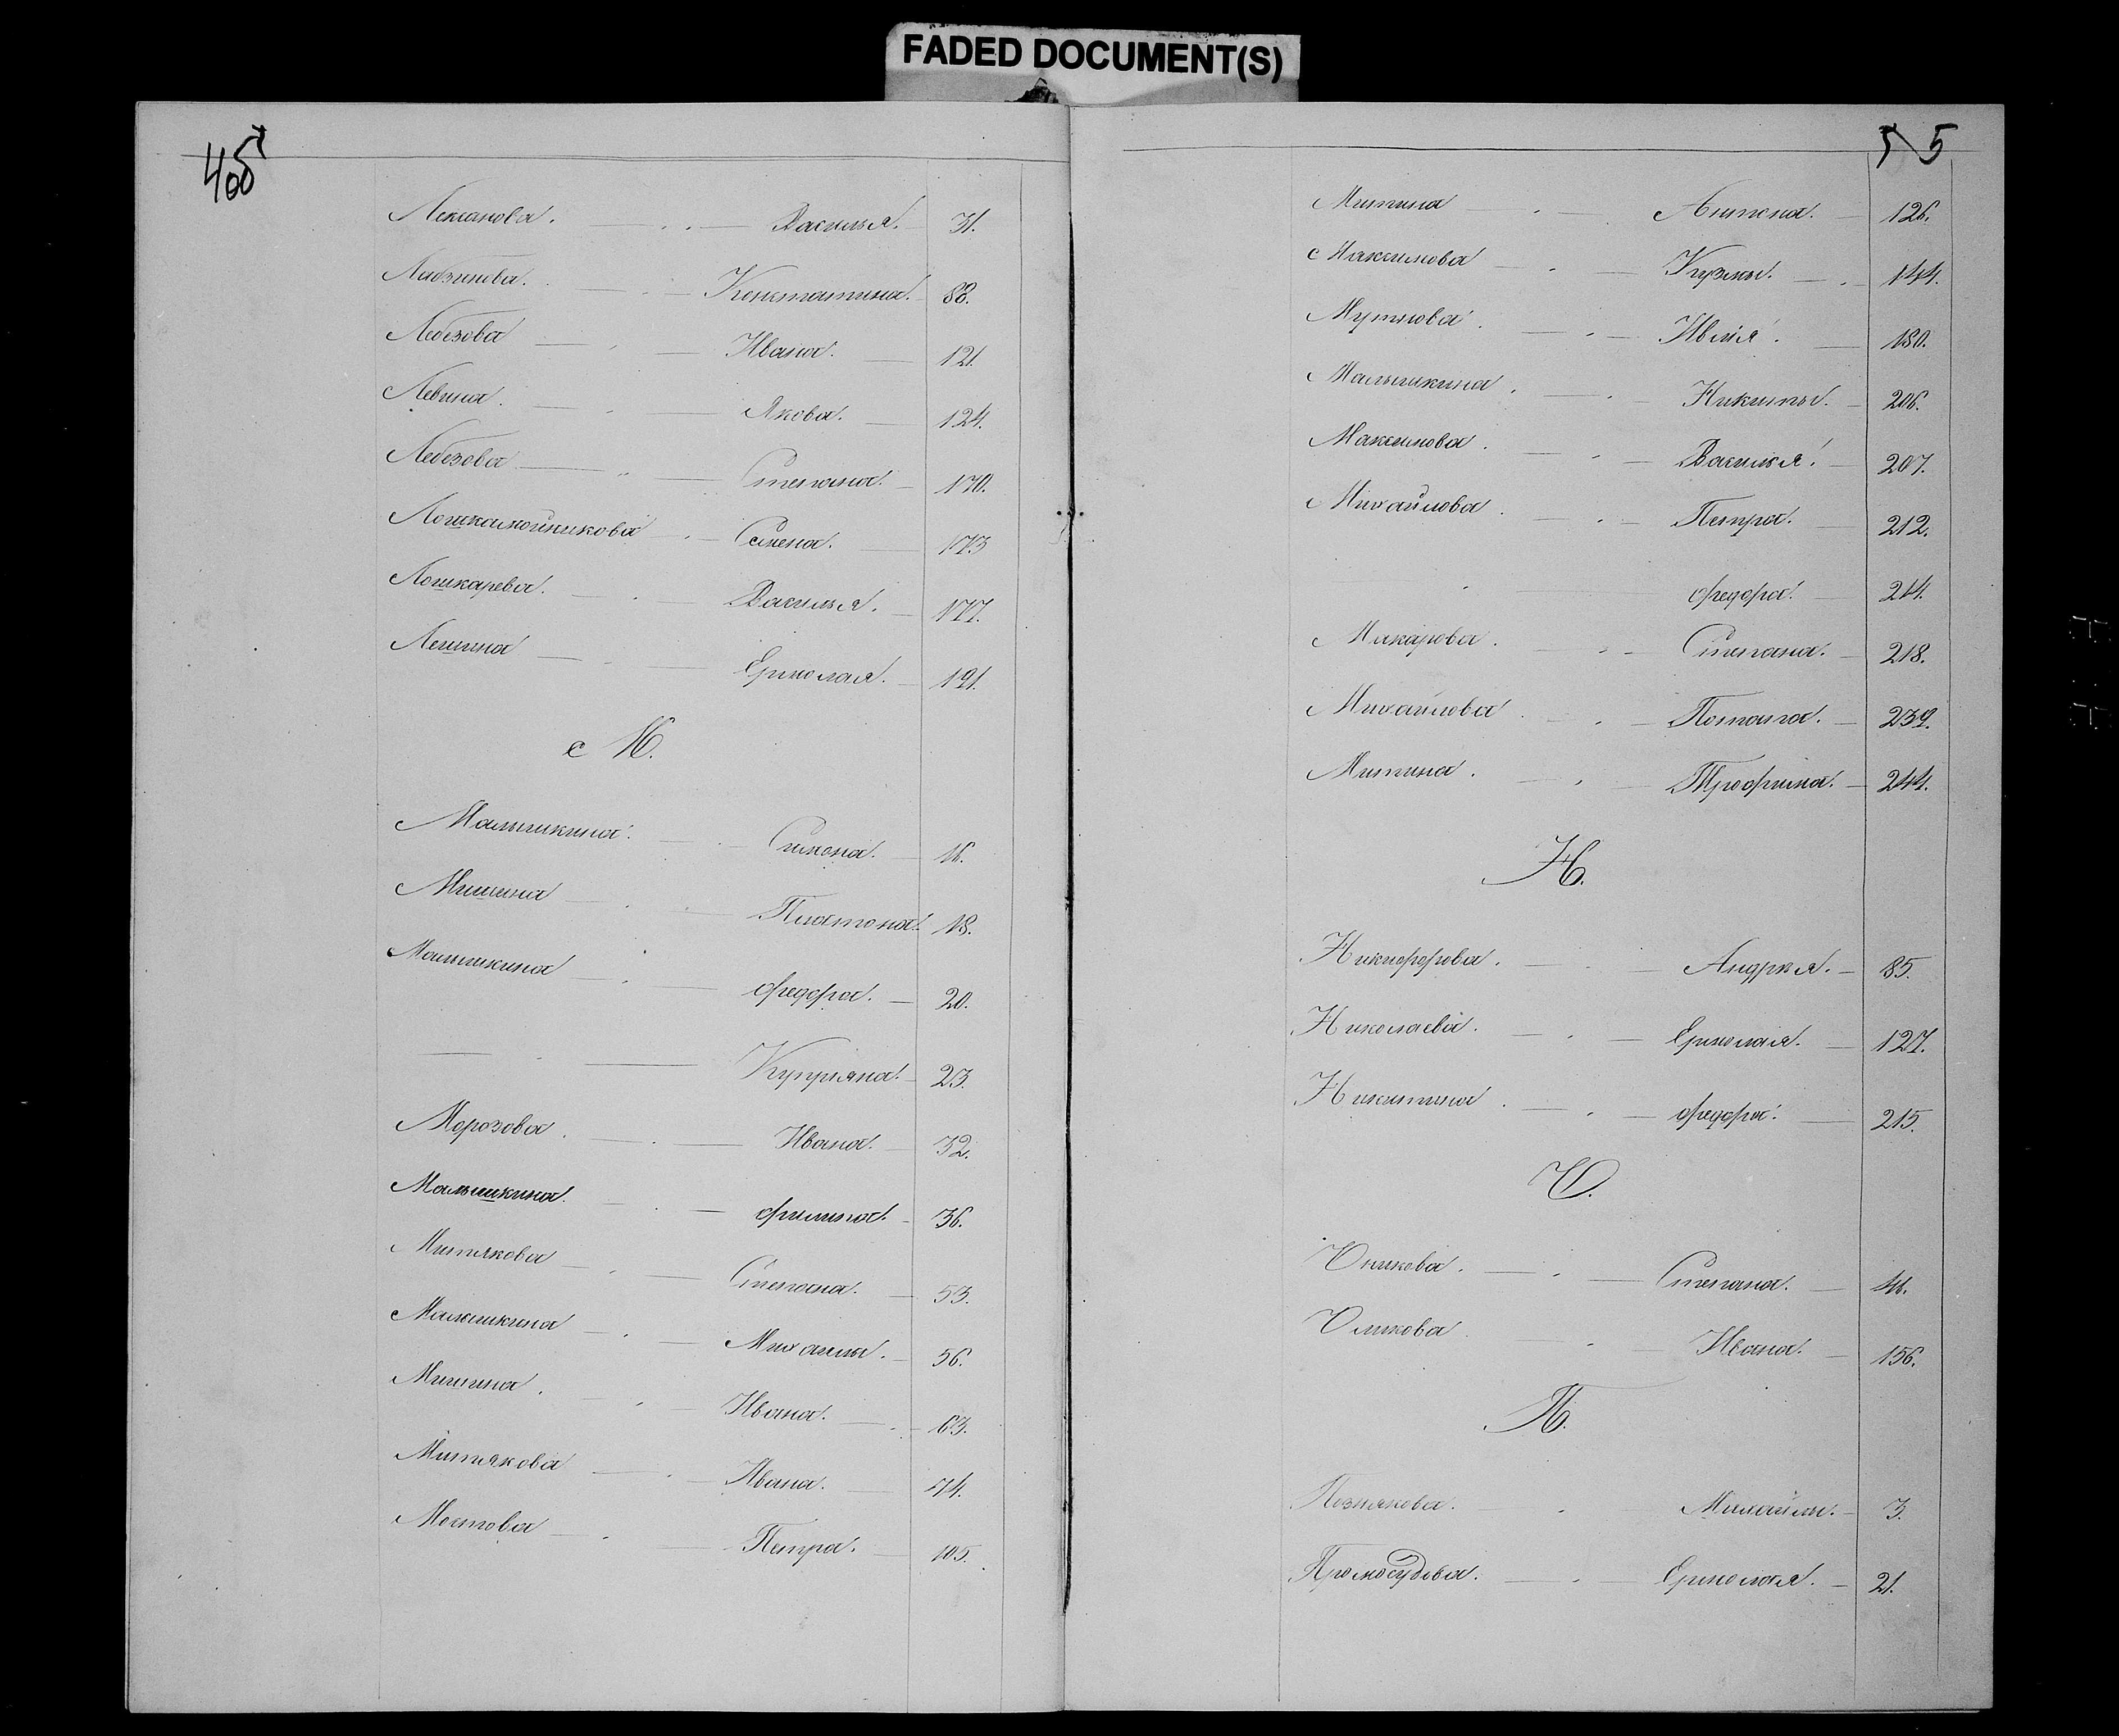 FADED DOCUMENT(S)
Лексанова. Василья. 31.
Константина. 88.
Лебезова Ивана. 121.
Левина. Якова. 124.
Лебезова Степана. 170.
Ложкамойникова Семена. 173
Лошкарева. Василья. 177.
Лешина Ермолая. 191.
М.
Малышкина. Симона. 16.
Мишина Платона. 18.
Малышкина Федора. 20.
Куприяна. 23.
Морозова. Ивана. 32.
Малышкина. Филипа. 36.
Митякова Степана. 53.
Малышкина Михаилы. 56.
Мишина. Ивана. 63.
Митякова Ивана. 74.
Мостова Петра. 105.
5
Митина Антона. 126.
Максимова Кузмы. 144.
Ивлія. 180.
Малышкина. Никиты. 206.
Максимова. Василья. 207.
Михайлова. Петра. 212.
Федора. 214.
Макарова. Степана. 218.
Михайлова. Потапа. 239.
Митина. Трофима. 244.
Н.
Никифорова. Андрея. 85.
Николаева. Ермолая. 127.
Никитина. Федора. 215.
О.
Оникова. Степана.
Оликова. Ивана. 156.
П.
Познякова. Михайлы. 3.
Промосудова. Ермолая. 21.